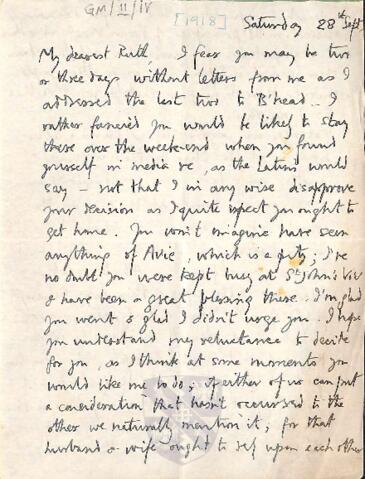 GM/II/IV
[1918] Saturday 28th Sept
My dearest Ruth, I fear you may be two
or three days without letters from me as I
addressed the last two to B'head. I
rather fancied you would be likely to stay
there over the week-end when you found
yourself in media re, as the Latins would
say – not that I in any wise disapprove
your decision as I quite expect you ought to
get home. You won't imagine have seen
anything of Avie, which is a pity; I've
no doubt you were kept busy at St John's Vic
& have been a great blessing there. I'm glad
you went & glad I didn't urge you. I hope
you understand my reluctance to decide
for you, as I think at some moments you
would like me to do; if either of us can put
a consideration that hasn't occurred to the
other we naturally mention it; for that
husband & wife ought to upon each other